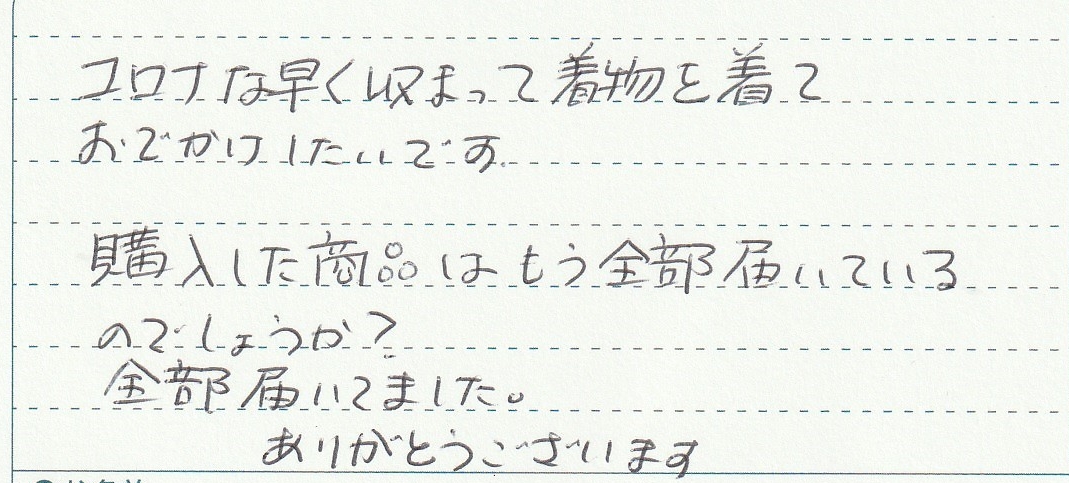 コロナな早く収まって着物を着て
おでかけしたいです
購入した商品はもう全部届いている
のでしょうか?
全部届いてました。
ありがとうございます